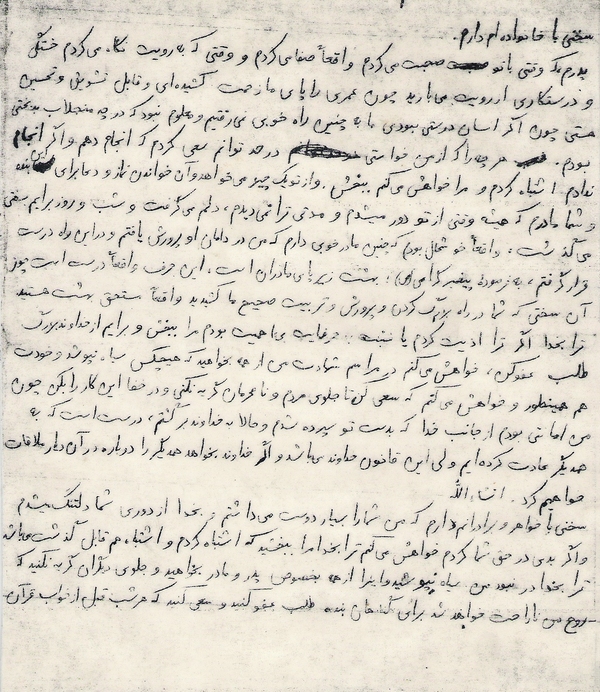 سخنی با خانواده ام دارم.
پدرم که وقتی با تو صحبت می‌کردم واقعاً صفا می‌کردم و وقتی که به رویت نگاه می‌کردم خستگی
و درستکاری از رویت می‌بارید چون عمری را پای ما زحمت کشیده‌ای و قابل تشویق و تحسین
هستی چون اگر انسان درستی نبودی ما به چنین راه خوبی نمی‌رفتیم و معلوم نبود که در چه منجلاب بدبختی
بودیم. هر چه را که از من خواستی در حد توانم سعی کردم که انجام دهم و اگر انجام
ندادم اشتباه کردم و مرا خواهش می‌کنم ببخش. و از تو یک چیز می‌خواهد و آن خواندن نماز و دعا برای این بنده
و شما مادرم که همیشه وقتی از تو دور میشدم و مدتی ترا نمی‌دیدم، دلم می‌گرفت و شب و روز برایم سختی
می‌گذشت. واقعاً خوشحال بودم که چنین مادر خوبی دارم که من در دامان او پرورش یافتم و در این راه درست
قرار گرفتم، به فرموده پیغمبر گرامی (ص): بهشت زیر پای مادران است. این حرف واقعاً درست است چون
آن سختی که شما در راه بزرگ کردن و پرورش و تربیت صحیح ما کشیدید واقعاً مستحق بهشت هستید
ترا بخدا اگر ترا اذیت کردم یا نسبت به حرفهایت بی اهمیت بودم مرا ببخش و برایم از خداوند بزرگ
طلب عفو کن، خواهش می‌کنم در مراسم شهادت من از همه بخواهید که هیچکس سیاه نپوشد و خودت
هم همینطور و خواهش می‌کنم که سعی کن تا جلوی مردم و نامحرمان گریه نکنی و در خفا این کار را بکن چون
من امانتی بودم از جانب خدا که بدست تو سپرده شدم و حالا به خداوند برگشتم، درست است که به
همدیگر عادت کرده ایم ولی این قانون خداوند می‌باشد و اگر خداوند بخواهد همدیگر را دوباره در آن دیار ملاقات
خواهیم کرد. انشاءالله
سخنی با خواهر و برادرانم دارم که من شما را بسیار دوست می‌داشتم و بخدا از دوری شما دلتنگ میشدم
و اگر بدی در حق شما کردم خواهش می‌کنم ترا بخدا مرا ببخشید که اشتباه کردم و اشتباه هم قابل گذشت می‌باشد
ترا بخدا در نبود من سیاه نپوشید و اینرا از همه بخصوص پدر و مادر بخواهید و جلوی دیگران گریه نکنید که
روح من ناراحت خواهد شد برای گناهان بنده طلب عفو کنید و سعی کنید که هر شب قبل از خواب قرآن